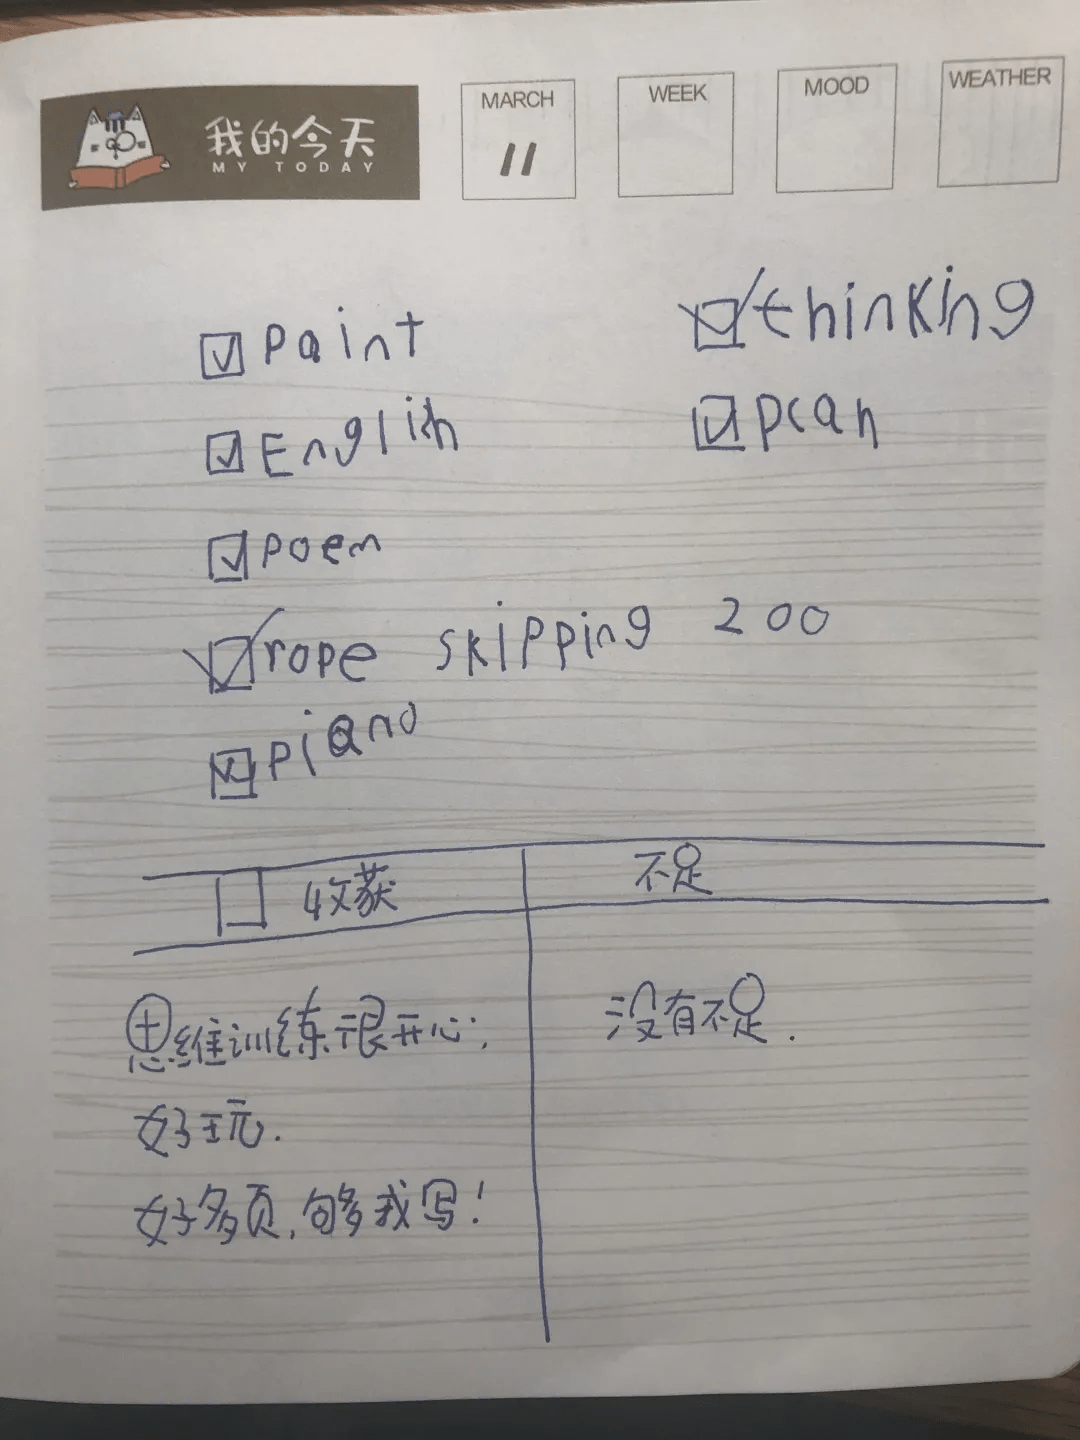 我的今天
MY TODAY
MARCH
11
WEEK
MOOD
WEATHER
paint
thinking
English
plan
poem
rope skipping 200
piano
收获
不足
思维训练很开心,
没有不足.
好玩.
好多页,够我写!